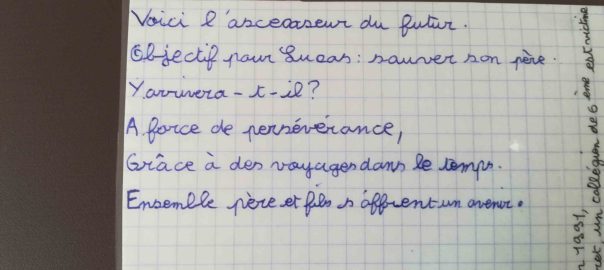 Voici l'ascenseur du futur.
Objectif pour Lucas : sauver son père.
Y arrivera-t-il ?
A force de persévérance,
Grâce à des voyages dans le temps.
Ensemble père et fils s'offrent un avenir.
1991,
et un collégien de 6 ème est victime